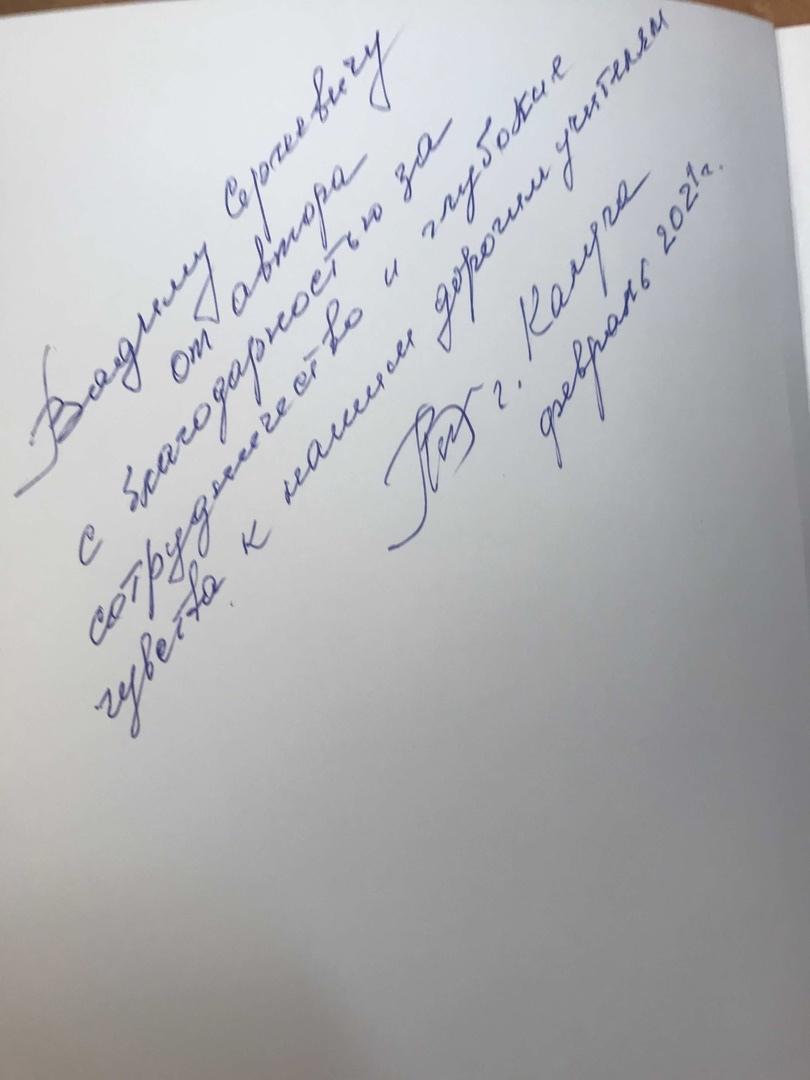 Вадиму Сергеевичу
от автора
с благодарностью за
сотрудничество и глубокие
чувства к нашим дорогим учителям
г. Калуга
февраль 2021г.